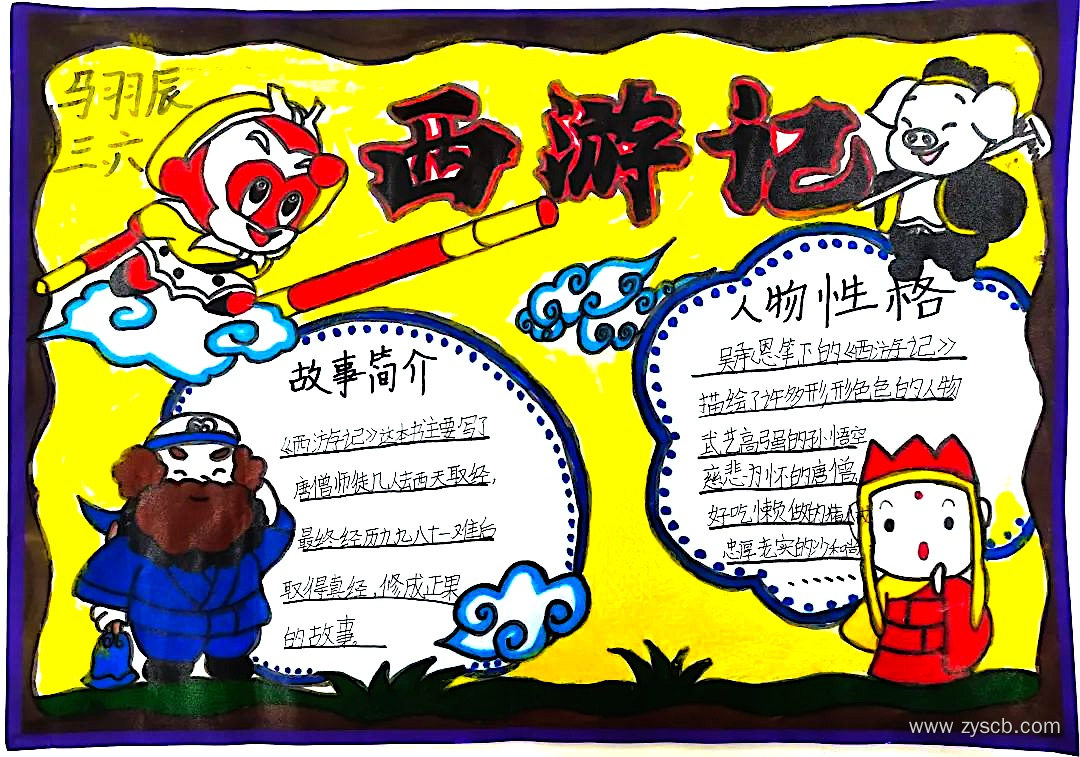 马羽辰
三六
西游记
故事简介
《西游记》这本书主要写了
唐僧师徒几人去西天取经,
最终经历九九八十一难后
取得真经,修成正果
的故事。
人物性格
吴承恩笔下的《西游记》
描绘了许多形形色色的人物
武艺高强的孙悟空
慈悲为怀的唐僧,
好吃懒做的猪八戒
忠厚老实的沙和尚
www.zyscb.com